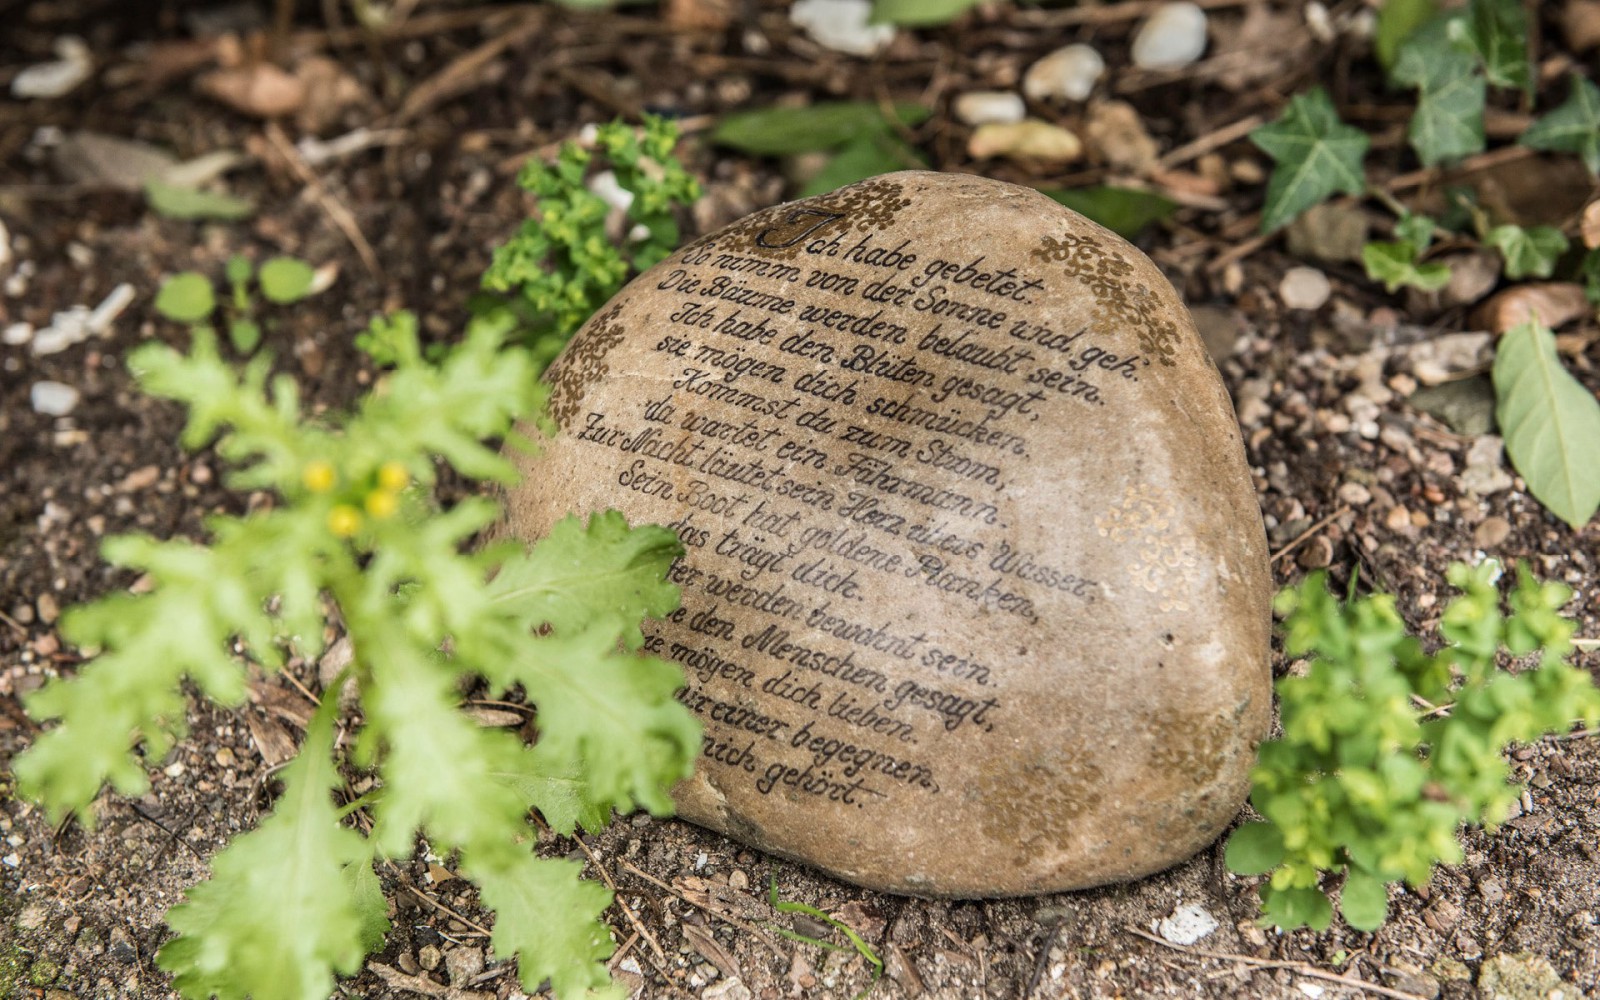 Ich habe gebetet.
So nimm von der Sonne und geh.
Die Bäume werden belaubt sein.
Ich habe den Blüten gesagt,
sie mögen dich schmücken.
Kommst du zum Strom,
da wartet ein Fährmann.
Zur Nacht läutet sein Herz übers Wasser.
Sein Boot hat goldene Planken,
das trägt dich.
fer werden bewohnt sein.
e den Menschen gesagt,
ie mögen dich lieben.
dir einer begegnen,
mich gehört.